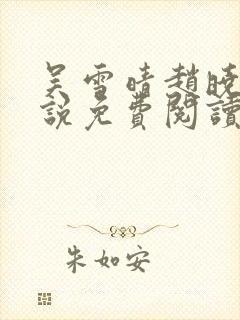 吴雪晴趙曉
說免費閱讀
朱如安